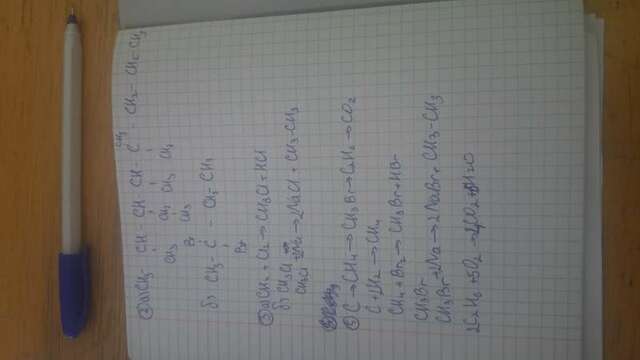 ② а) CH₃ - CH - CH - CH - C - CH₂ - CH₂ - CH₃
CH₃ CH₂ CH₃ CH₃
CH₃
Br
б) CH₃ - C - CH₂ - CH₃
Br
③ а) CH₄ + Cl₂ → CH₃Cl + HCl
б) CH₃Cl
CH₃Cl + 2Na → 2NaCl + CH₃-CH₃
⑤ C → CH₄ → CH₃Br → C₂H₆ → CO₂
C + 2H₂ → CH₄
CH₄ + Br₂ → CH₃Br + HBr
CH₃Br
CH₃Br + 2Na → 2NaBr + CH₃-CH₃